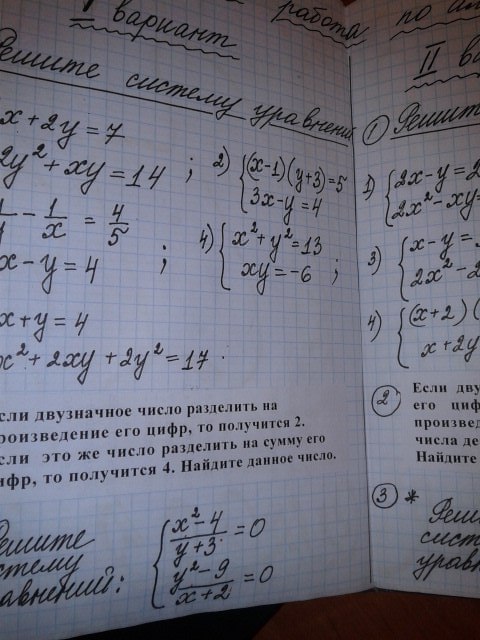 I вариант
работа по ал
Решите систему уравнений
x + 2y = 7
2y² + xy = 14 ;
2) { (x-1)(y+3) = 5
3x - y = 4
1/y - 1/x = 4/5
x - y = 4 ;
4) { x² + y² = 13
xy = -6 ;
x + y = 4
x² + 2xy + 2y² = 17 .
сли двузначное число разделить на
роизведение его цифр, то получится 2.
сли это же число разделить на сумму его
ифр, то получится 4. Найдите данное число.
Решите
стему
авнений:
{ (x² - 4)/(y + 3) = 0
(y² - 9)/(x + 2) = 0
II ва
① Решит
1) { 2x - y = 2
2x² - xy =
3) { x - y =
2x² - 2
4) { (x + 2)(
x + 2y
② Если дву
его циф
произвед
числа де
Найдите
③ * Реши
сист
уравн